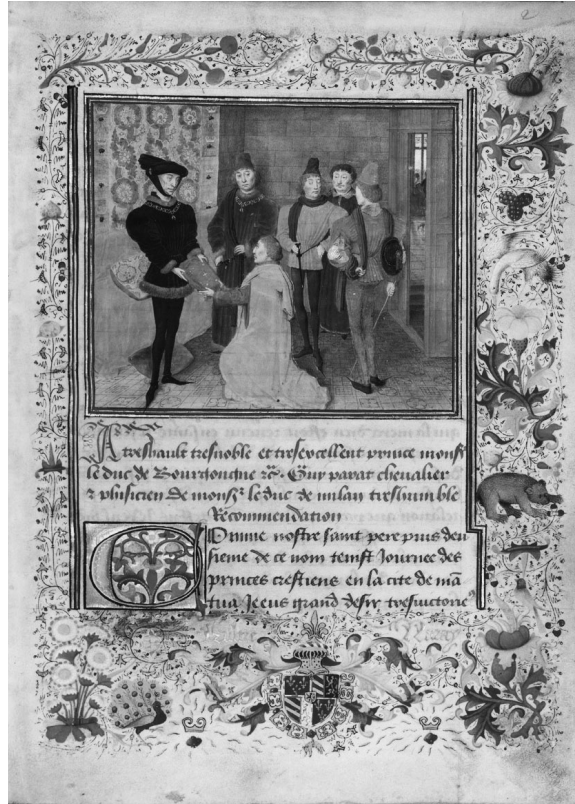 2
A treshault tresnoble et tresexcellent prince monsr
le duc de Bourgongne &c. Guy parat chevalier
& phisicien de monsr le duc de milan treshumble
Recommendation
Comme nostre saint pere pius deu
sieme de ce nom tenist Journee des
princes crestiens en la cite de mā
tua Je eus grand desir